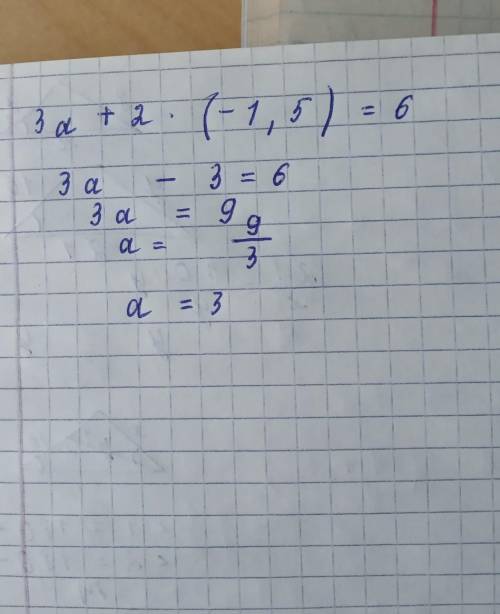 3a + 2 · (-1,5) = 6
3a - 3 = 6
3a = 9
a = 9/3
a = 3